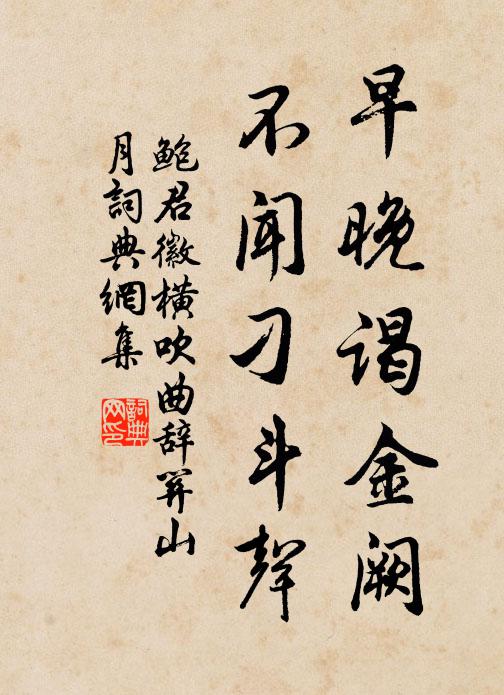 早晚谒金阙
不闻刁斗聲
鲍君徽橫吹曲辞関山
月詞典網集
詞典网印